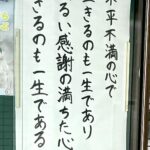 不平不満の心で
生きるのも一生であり
るい感謝の満ちた心
きるのも一生である